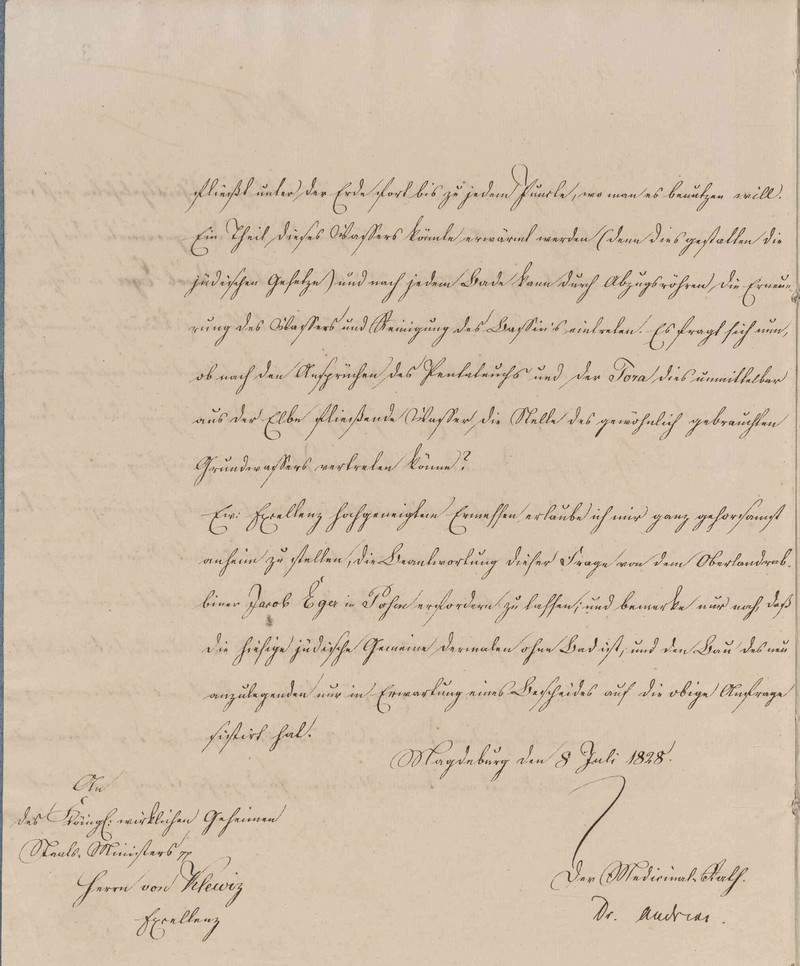 fließt unter der Erde fort bis zu jedem Puncte, wo man es benutzen will.
Ein Theil dieses Wassers könnte erwärmt werden (denn dies gestatten die
jüdischen Gesetze) und nach jedem Bade kann durch Abzugsröhren, die Erneue-
rung des Wassers und Reinigung des Bassin's eintreten. Es fragt sich nun,
ob nach den Ansprüchen des Pentateuchs und der Tora dies unmittelbar
aus der Elbe fließende Wasser, die Stelle des gewöhnlich gebrauchten
Grundwassers vertreten könne?
Ew: Excellenz hochgeneigtem Ermessen erlaube ich mir ganz gehorsamst
anheim zu stellen, die Beantwortung dieser Frage von dem Oberlandrab-
biner Jacob Eger in Posen erfordern zu lassen; und bemerke nur noch, daß
die hiesige jüdische Gemeine dermalen ohne Bad ist, und den Bau des neu
anzulegenden nur in Erwartung eines Bescheides auf die obige Anfrage
sistirt hat.
Magdeburg den 8 Juli 1828.
An
des Königl: wirklichen Geheimen
Staats-Ministers pp
Herrn von Klewiz
Excellenz
Der Medicinal-Rath.
Dr. Andreae.